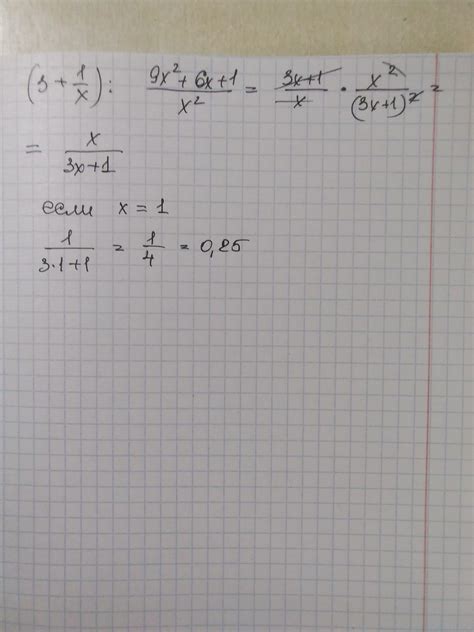 (3 + 1/x) : (9x² + 6x + 1)/x² = (3x+1)/x · x²/(3x+1)² =
= x/(3x+1)
если x = 1
1/(3·1+1) = 1/4 = 0,25